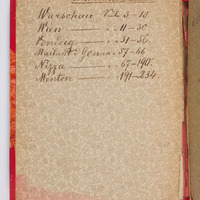 Warschau Seite 3-10.
Wien " 11-30
Venedig " 31-56.
Mailand-Genua " 57-66
Nizza " 67-190.
Menton " 191-234.